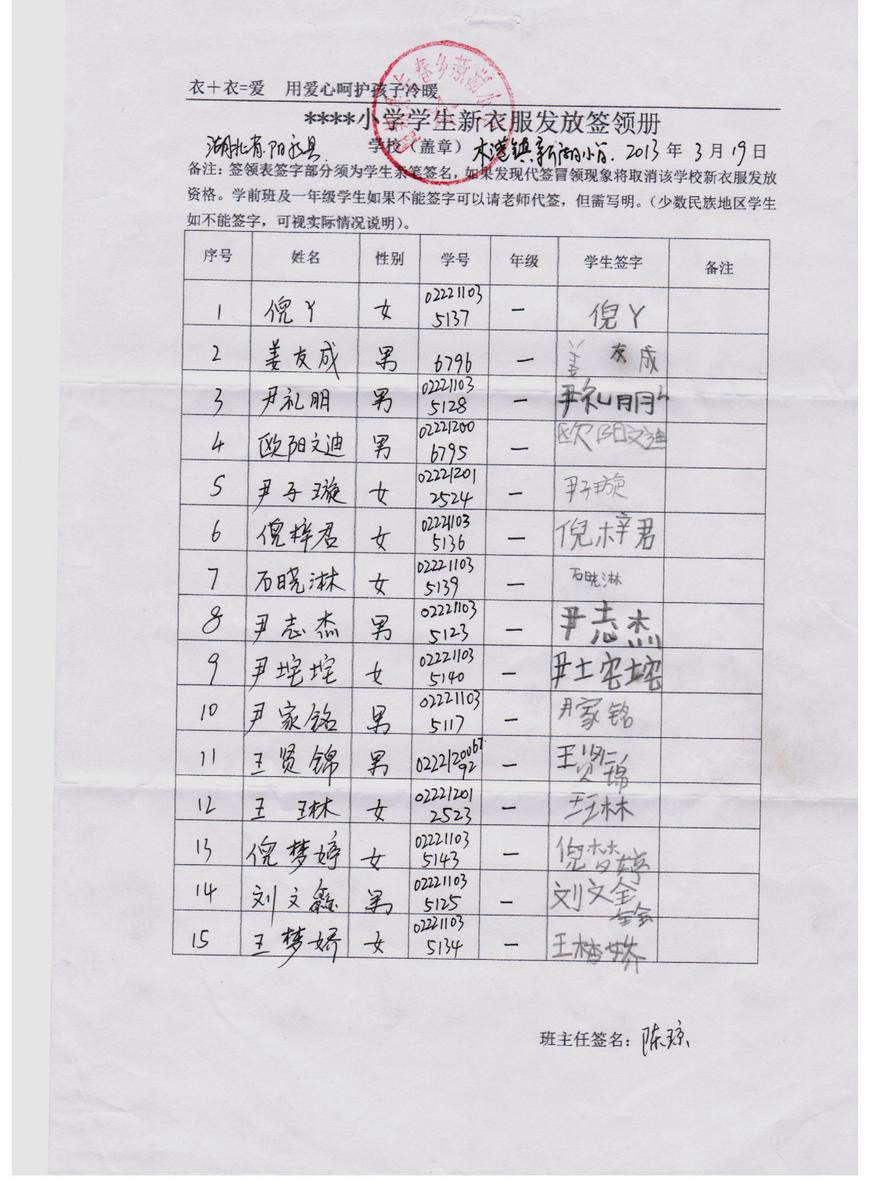 衣＋衣=爱 用爱心呵护孩子冷暖
****小学学生新衣服发放签领册
湖北省阳新县 学校（盖章） 木港镇新湖小学. 2013年3月19日
备注：签领表签字部分须为学生亲笔签名，如果发现代签冒领现象将取消该学校新衣服发放
资格。学前班及一年级学生如果不能签字可以请老师代签，但需写明。（少数民族地区学生
如不能签字，可视实际情况说明）。
序号 姓名 性别 学号 年级 学生签字 备注
1 倪丫 女 02221103 5137 一 倪丫
2 姜友成 男 6796 一 姜友成
3 尹礼朋 男 02221103 5128 一 尹礼朋
4 欧阳文迪 男 02221200 6795 一 欧阳文迪
5 尹子璇 女 02221201 2524 一 尹子璇
6 倪梓君 女 02221103 5136 一 倪梓君
7 石晓淋 女 02221103 5139 一 石晓淋
8 尹志杰 男 02221103 5123 一 尹志杰
9 尹垞垞 女 02221103 5140 一 尹垞垞
10 尹家铭 男 02221103 5117 一 尹家铭
11 王贤锦 男 0222120067 92 一 王贤锦
12 王 玨林 女 02221201 2523 一 王玨林
13 倪梦婷 女 02221103 5143 一 倪梦婷
14 刘文鑫 男 02221103 5125 一 刘文鑫
15 王梦娇 女 02221103 5134 一 王梦娇
班主任签名：陈琼